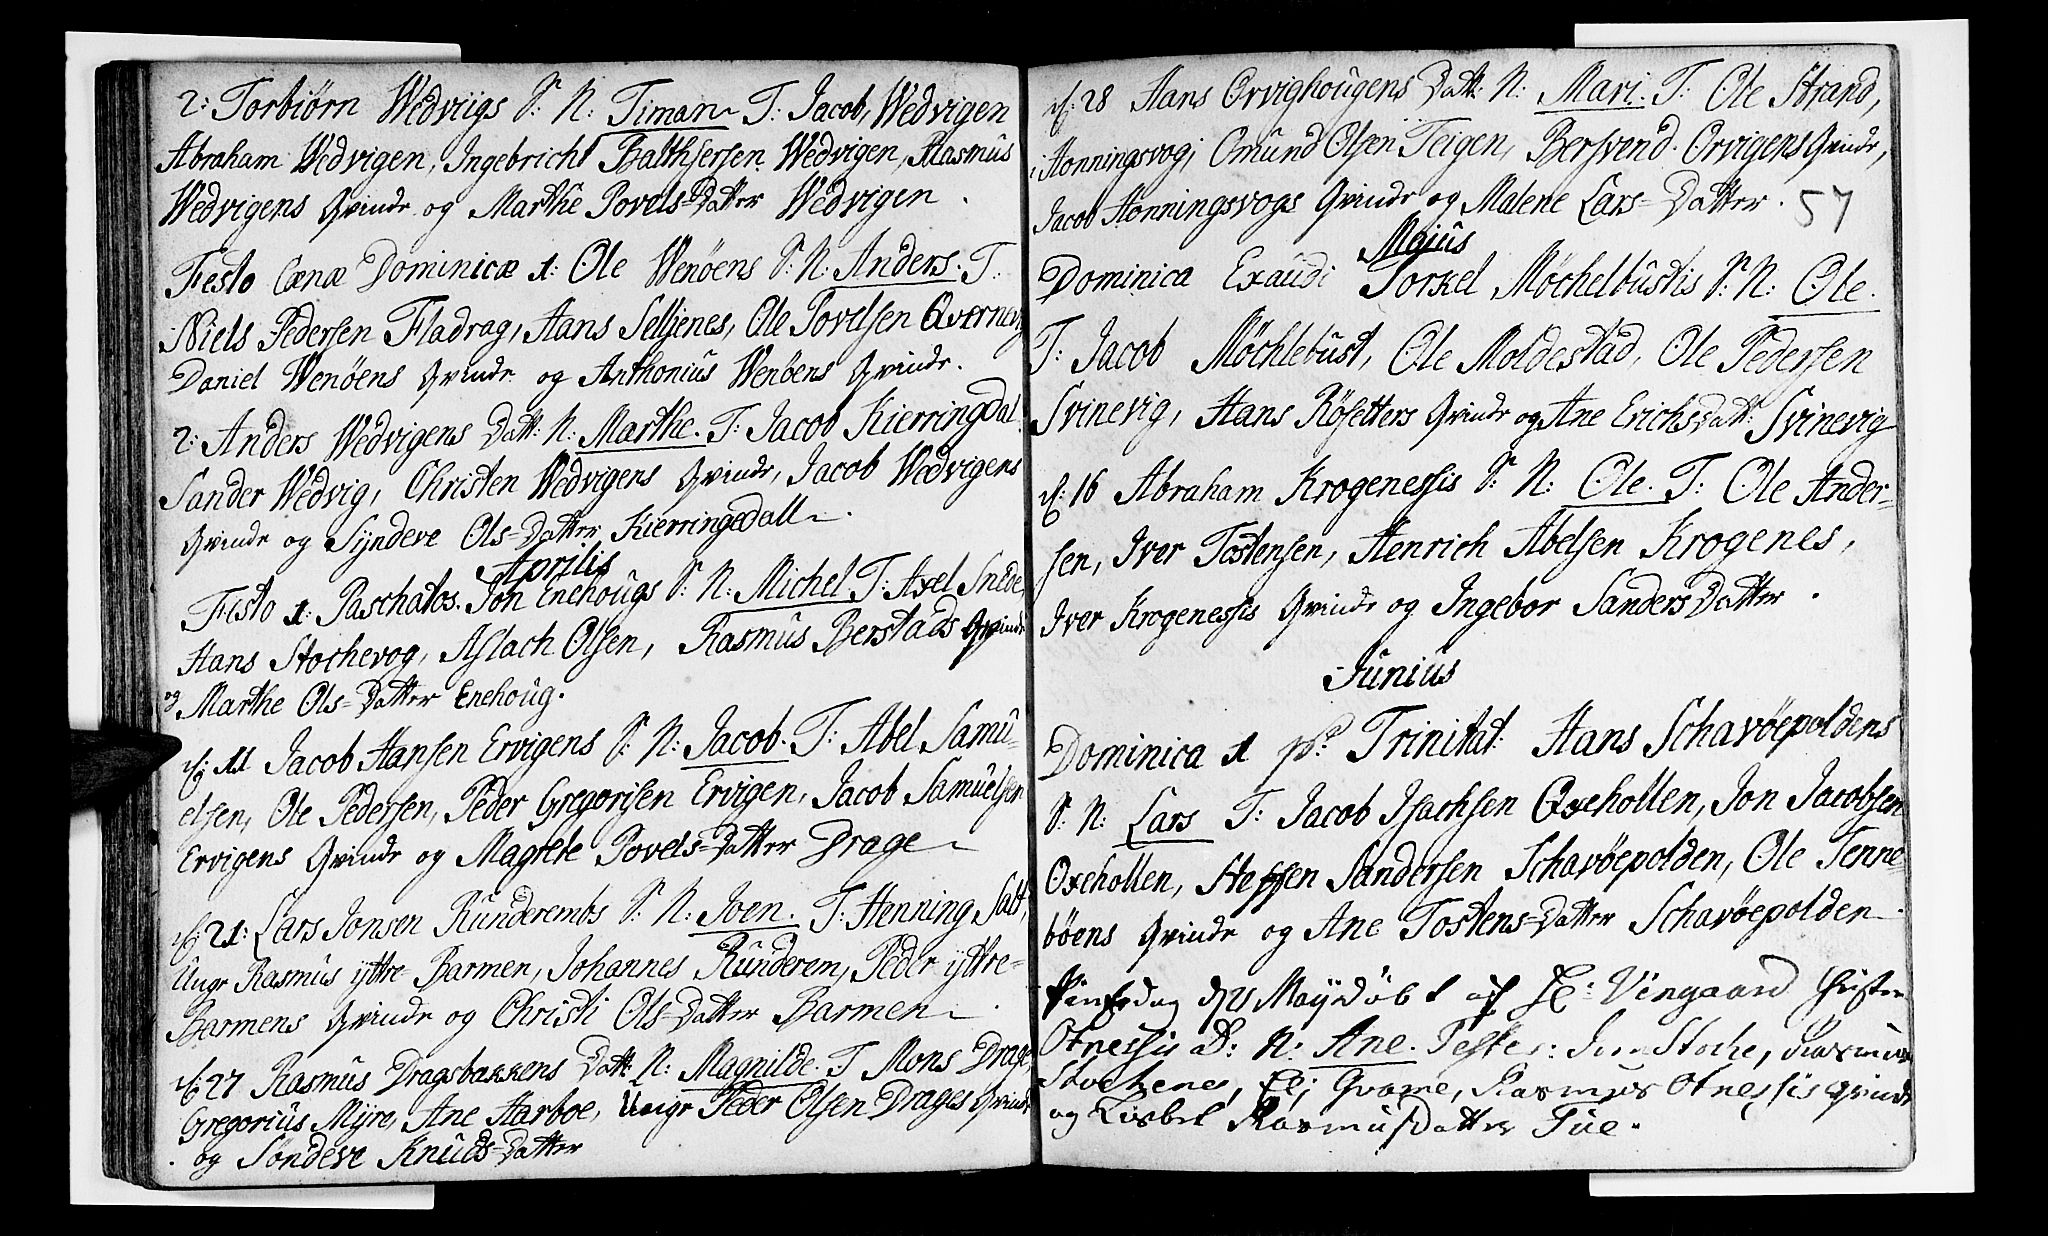 2: Torbiørn Wedviigs S: N: Timan T: Jacob Wedvigen
Abraham Wedvigen, Ingebricht Balthsersen Wedvigen, Rasmus
Wedvigens Qvinde og Marthe Povels-Datter Wedvigen.
Festo Cænæ Dominicæ 1: Ole Wenöens S: N: Anders. T:
Niels Pedersen Fladrag, Hans Selljenes, Ole Povelsen Qvernevig
Daniel Wenöens Qvinde og Anthonius Wenöens Qvinde.
2: Anders Wedvigens Datt: N: Marthe. T: Jacob Kierringdal
Sander Wedvig, Christen Wedvigens Qvinde, Jacob Wedvigens
Qvinde og Syndeve Ols-Datter Kierringedall.
Aprilis
Festo 1: Paschatos. Jon Enehougs S: N: Michel T: Axel Snede,
Hans Stochevog, Aslach Olsen, Rasmus Berstads Qvinde
og Marthe Ols-Datter Enehoug.
d: 11 Jacob Hansen Ervigens S: N: Jacob. T: Abel Samu-
elsen, Ole Pedersen, Peder Gregorisen Ervigen, Jacob Samuelsen
Ervigens Qvinde og Magrete Povels-Datter Drage
d: 21: Lars Jonsen Runderembs S: N: Joen. T: Henning Salt,
Unge Rasmus yttre Barmen, Johannes Runderem, Peder yttre-
Barmens Qvinde og Christi Ols-Datter Barmen.
d: 27 Rasmus Dragsbakkens Datt: N: Magnilde. T Mons Drage,
Gregorius Myre, Ane Aarboe, Unge Peder Olsen Drages Qvinde
og Söndeve Knuds-Datter
d: 28 Hans Orvighougens Datt: N: Mari. T: Ole Strand,
i Honningsvog; Omund Olsen Teigen, Bersvend Orvigens Qvinde,
Jacob Honningsvogs Qvinde og Malene Lars-Datter. 57
Majus
Dominica Exaudi Torkel Möchelbustis S: N: Ole.
T: Jacob Möchlebust, Ole Moldestad, Ole Pedersen
Svinevig, Hans Rösetters Qvinde og Ane Erichs Datt: Svinevig
d: 16 Abraham Krogenessis S: N: Ole. T: Ole Ander-
sen, Iver Tostensen, Henrich Abelsen Krogenes,
Iver Krogenessis Qvinde og Ingebor Sanders Datter.
Junius
Dominica 1 p: Trinitat: Hans Schavöepoldens
S: N: Lars T: Jacob Isachsen Oxehollen, Jon Jacobsen
Oxehollen, Steffen Sandersen Schavöepolden, Ole Tenne-
böens Qvinde og Ane Tostens-Datter Schavöepolden.
Pintzdag d 21 May döbt af H: Vingaard Christen
Otnessis D: N: Ane. Testes: Stoche, Rasmus
Stochenes, Eli Qvame, Rasmus Otnessis Qvinde
og Lisbet Rasmusdatter Tue.